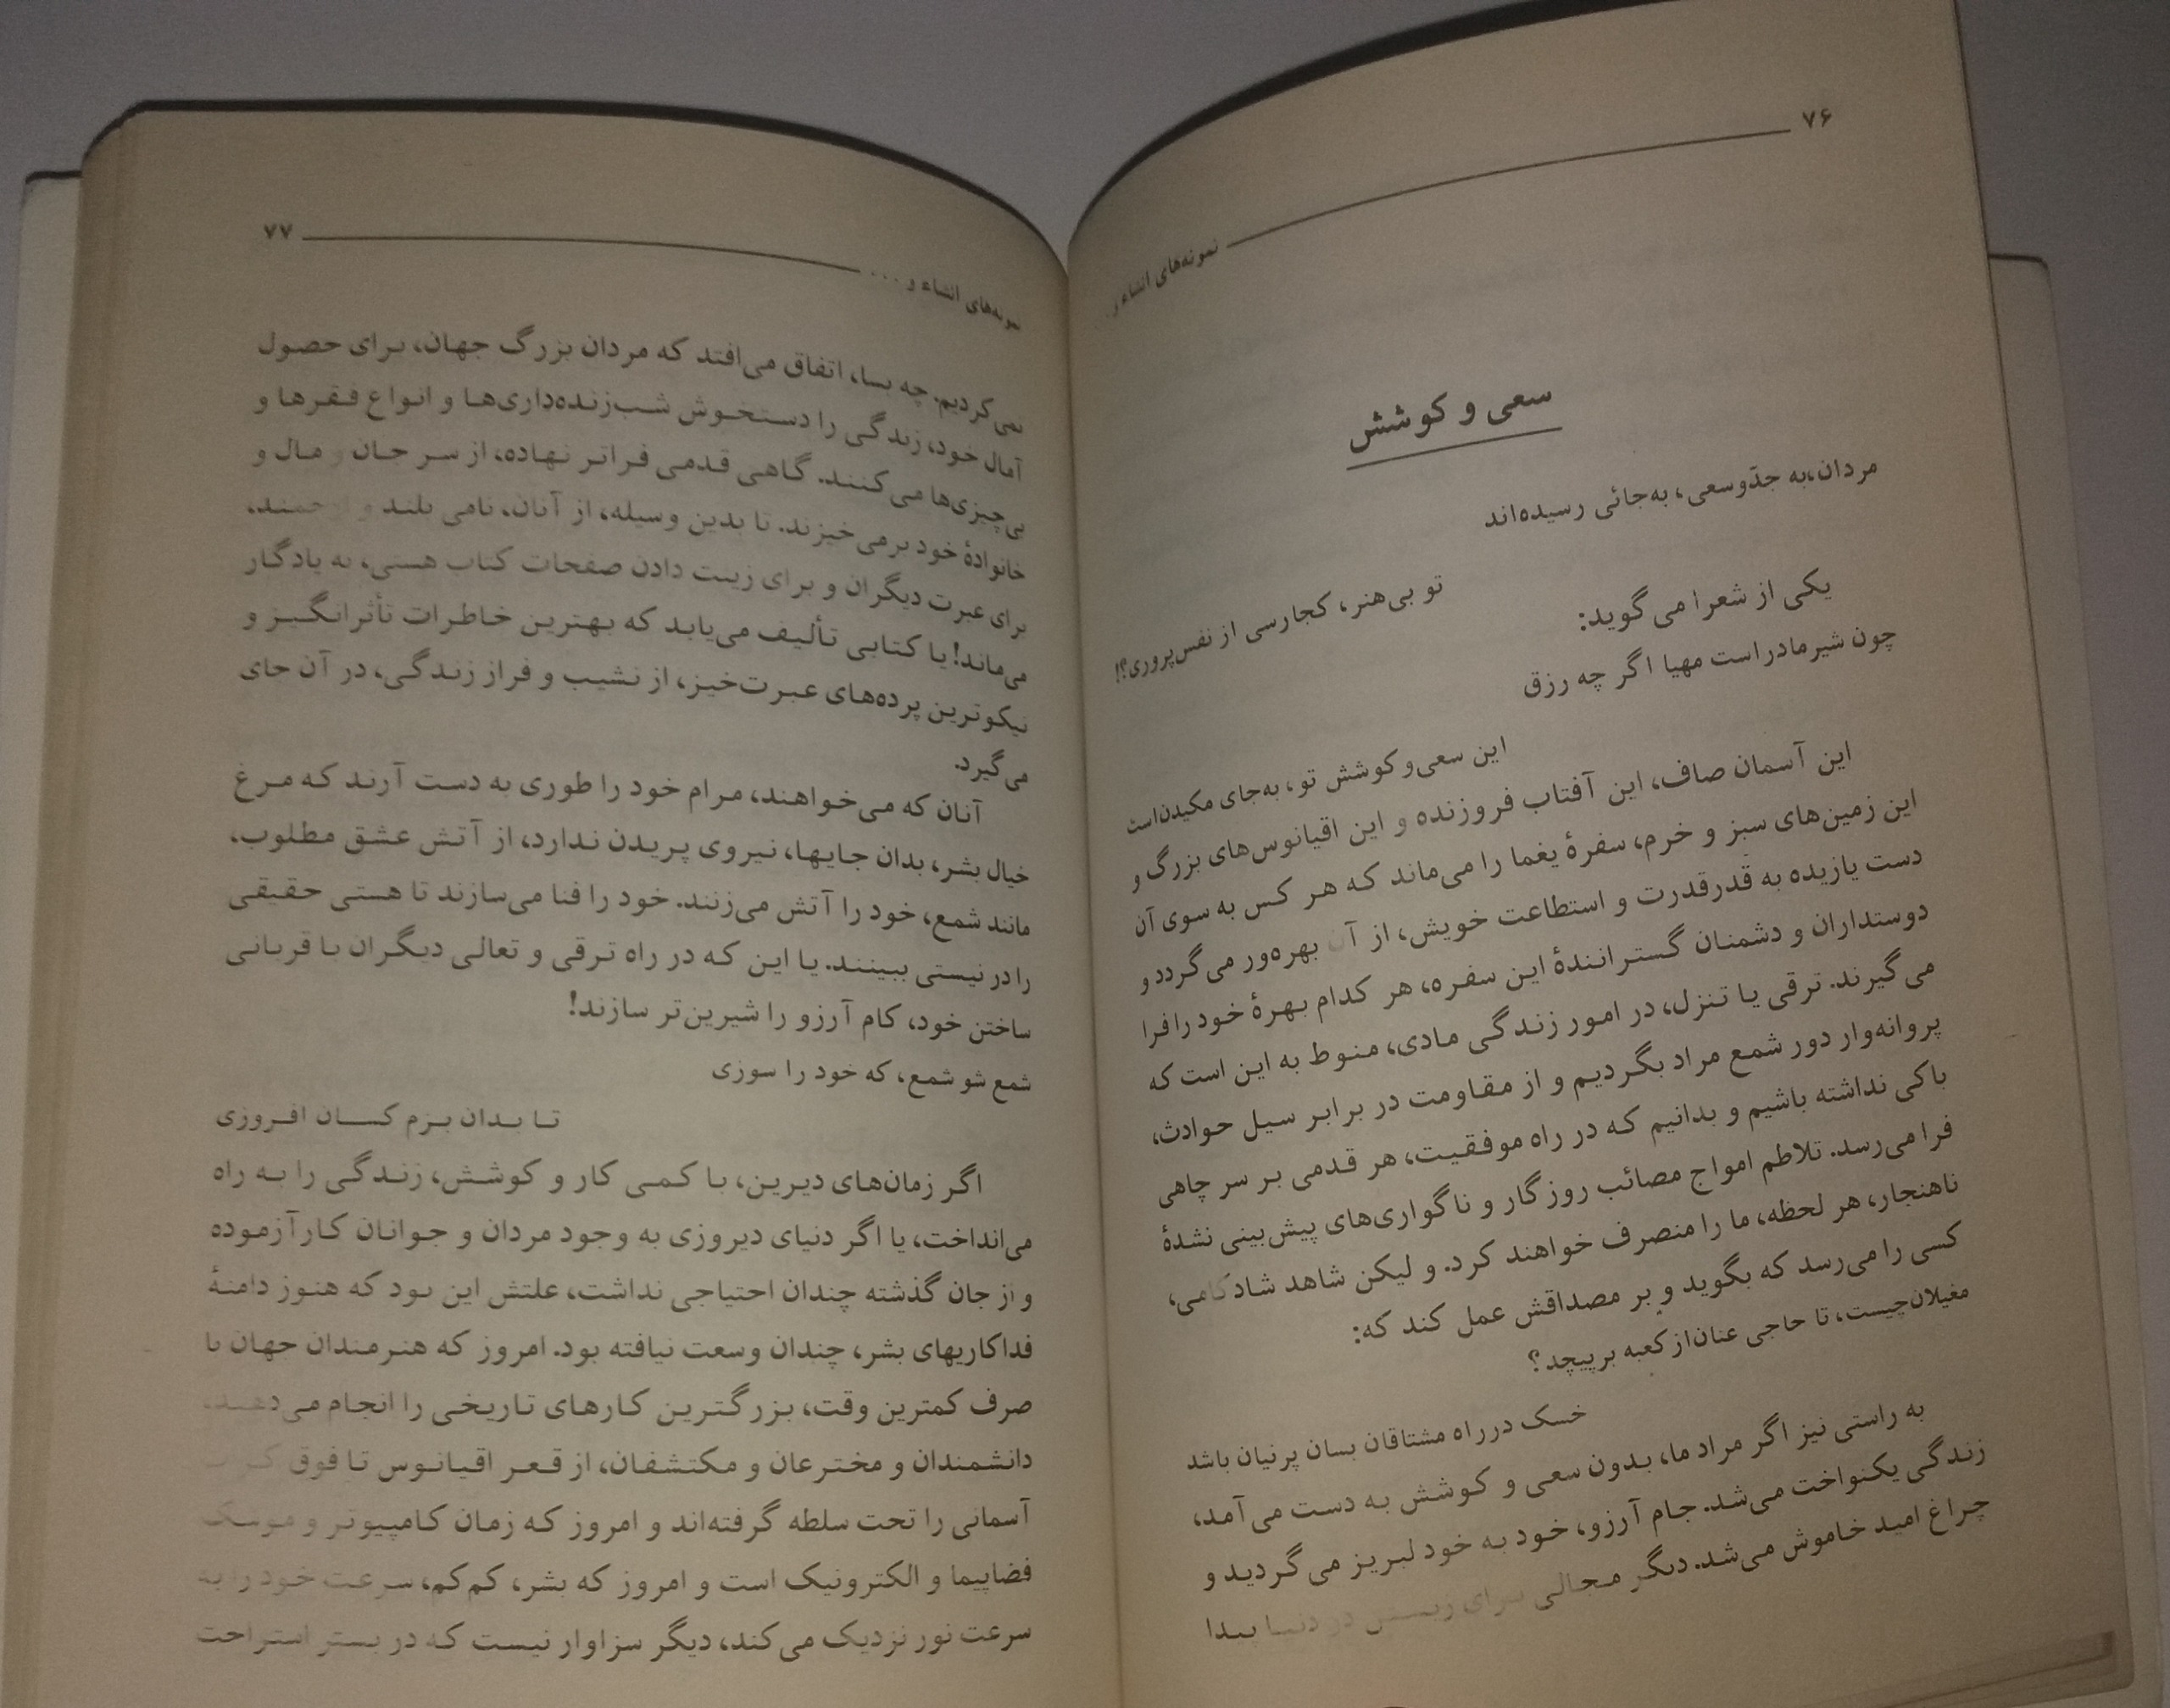 ۷۶
نمونه‌های انشاء و
سعی و کوشش
مردان،به جدّوسعی، به‌جائی رسیده‌اند
تو بی‌هنر، کجارسی از نفس‌پروری؟!
یکی از شعرا می‌گوید:
چون شیرمادراست مهیا اگر چه رزق
این سعی‌و کوشش تو، به‌جای مکیدن‌است
این آسمان صاف، این آفتاب فروزنده و این اقیانوس‌های بزرگ و
این زمین‌های سبز و خرم، سفرهٔ یغما را می‌ماند که هر کس به سوی آن
دست یازیده به قدرقدرت و استطاعت خویش، از آن بهره‌ور می‌گردد و
دوستداران و دشمنان گسترانندهٔ این سفره، هر کدام بهرهٔ خود را فرا
می‌گیرند. ترقی یا تنزل، در امور زندگی مادی، منوط به این است که
پروانه‌وار دور شمع مراد بگردیم و از مقاومت در برابر سیل حوادث،
باکی نداشته باشیم و بدانیم که در راه موفقیت، هر قدمی بر سر چاهی
فرا می‌رسد. تلاطم امواج مصائب روزگار و ناگواری‌های پیش‌بینی نشدهٔ
ناهنجار، هر لحظه، ما را منصرف خواهند کرد. و لیکن شاهد شادکامی،
کسی را می‌رسد که بگوید و بر مصداقش عمل کند که:
مغیلان‌چیست، تا حاجی عنان‌از کعبه برپیچد؟
خسک در راه مشتاقان بسان پرنیان باشد
به راستی نیز اگر مراد ما، بدون سعی و کوشش به دست می‌آمد،
زندگی یکنواخت می‌شد. جام آرزو، خود به خود لبریز می‌گردید و
چراغ امید خاموش می‌شد. دیگر مجالی برای زیستن در دنیا پیدا
۷۷
نمونه‌های انشاء و . . .
نمی‌کردیم. چه بسا، اتفاق می‌افتد که مردان بزرگ جهان، برای حصول
آمال خود، زندگی را دستخوش شب‌زنده‌داری‌ها و انواع فقرها و
بی‌چیزی‌ها می‌کنند. گاهی قدمی فراتر نهاده، از سر جان و مال و
خانوادهٔ خود برمی‌خیزند. تا بدین وسیله، از آنان، نامی بلند و ارجمند،
برای عبرت دیگران و برای زینت دادن صفحات کتاب هستی، به یادگار
می‌ماند! یا کتابی تألیف می‌یابد که بهترین خاطرات تأثرانگیز و
نیکوترین پرده‌های عبرت‌خیز، از نشیب و فراز زندگی، در آن جای
می‌گیرد.
آنان که می‌خواهند، مرام خود را طوری به دست آرند که مرغ
خیال بشر، بدان جایها، نیروی پریدن ندارد، از آتش عشق مطلوب،
مانند شمع، خود را آتش می‌زنند. خود را فنا می‌سازند تا هستی حقیقی
را در نیستی ببینند. یا این که در راه ترقی و تعالی دیگران با قربانی
ساختن خود، کام آرزو را شیرین‌تر سازند!
شمع شو شمع، که خود را سوزی
تا بدان بزم کسان افروزی
اگر زمان‌های دیرین، با کمی کار و کوشش، زندگی را به راه
می‌انداخت، یا اگر دنیای دیروزی به وجود مردان و جوانان کارآزموده
و از جان گذشته چندان احتیاجی نداشت، علتش این بود که هنوز دامنهٔ
فداکاریهای بشر، چندان وسعت نیافته بود. امروز که هنرمندان جهان با
صرف کمترین وقت، بزرگترین کارهای تاریخی را انجام می‌دهند،
دانشمندان و مخترعان و مکتشفان، از قعر اقیانوس تا فوق
آسمانی را تحت سلطه گرفته‌اند و امروز که زمان کامپیوتر و موشک
فضاپیما و الکترونیک است و امروز که بشر، کم‌کم، سرعت خود را به
سرعت نور نزدیک می‌کند، دیگر سزاوار نیست که در بستر استراحت